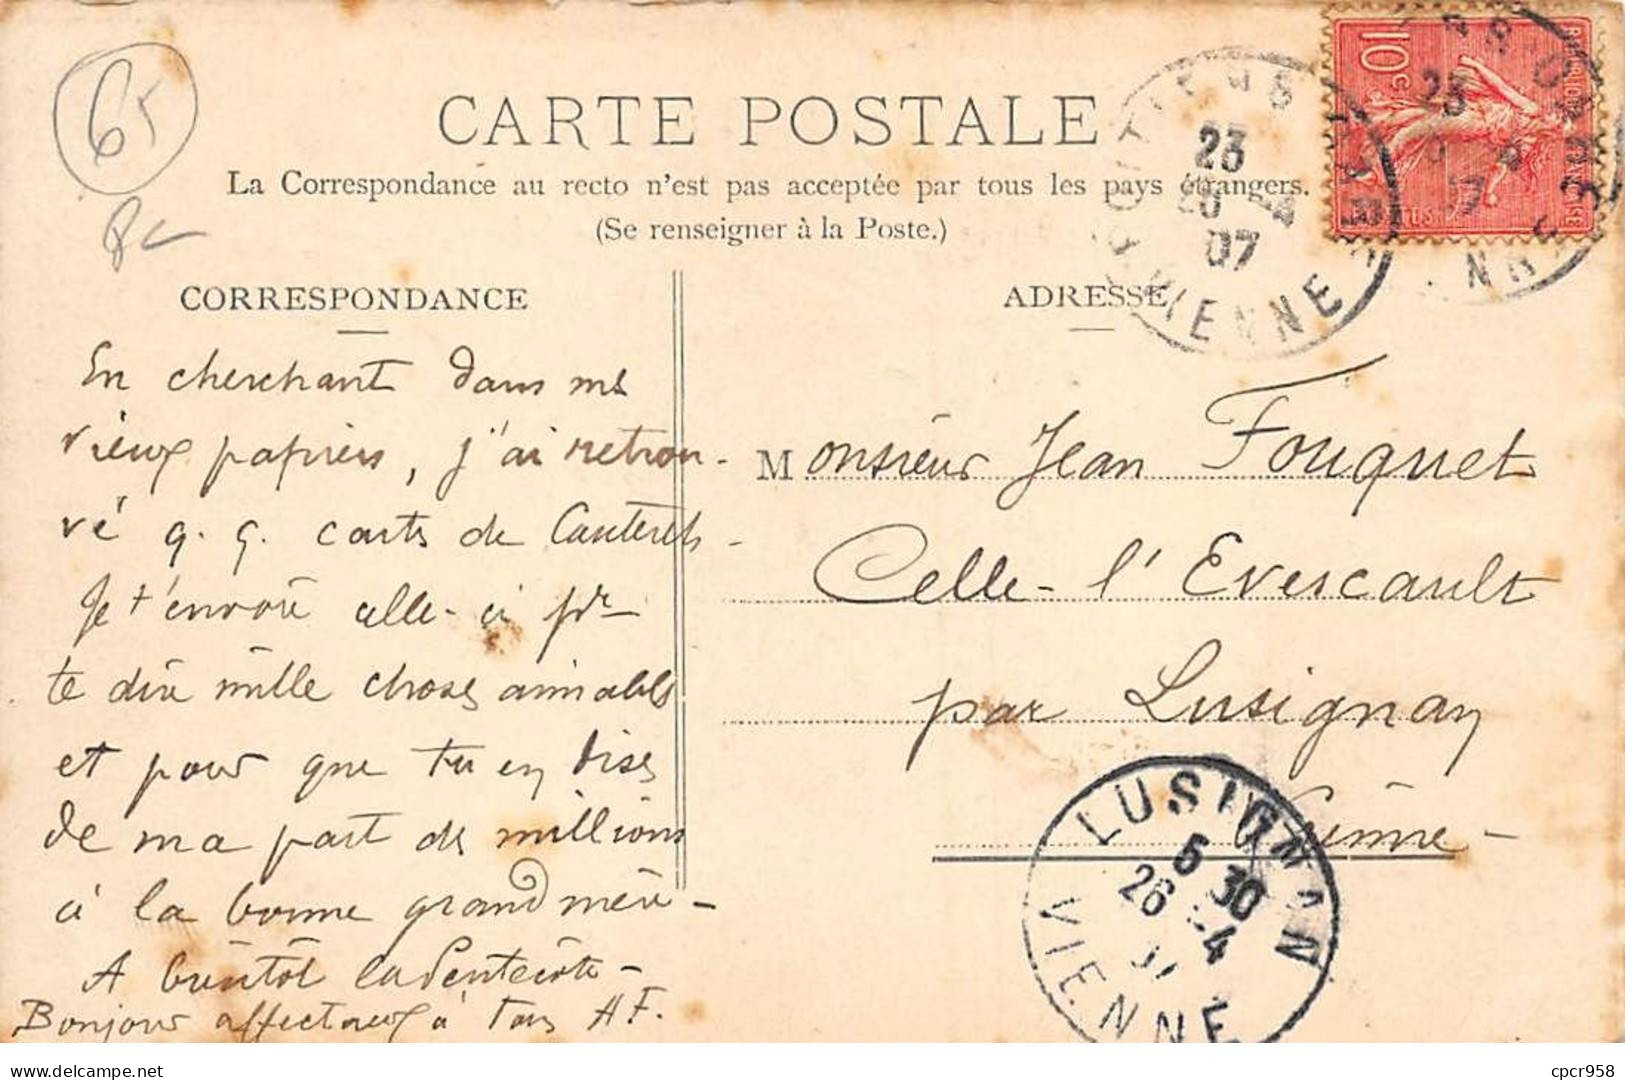 65
CARTE POSTALE
La Correspondance au recto n'est pas acceptée par tous les pays étrangers.
(Se renseigner à la Poste.)
CORRESPONDANCE
En cherchant dans mes
vieux papiers, j'ai retrou-
vé q. q. cartes de Cauterets -
Je t'envoie celle-ci pr
te dire mille choses aimables
et pour que tu en dises
de ma part des millions
à la bonne grand mère -
A bientôt la Pentecôte -
Bonjour affectueux à tous A F.
ADRESSE
Monsieur Jean Fouquet
Celle - l'Evescault
par Lusignan
Vienne -
POITIERS
23
20 -4
07
VIENNE
10c
LUSIGNAN
5 30
26 -4
07
VIENNE
cpcr958